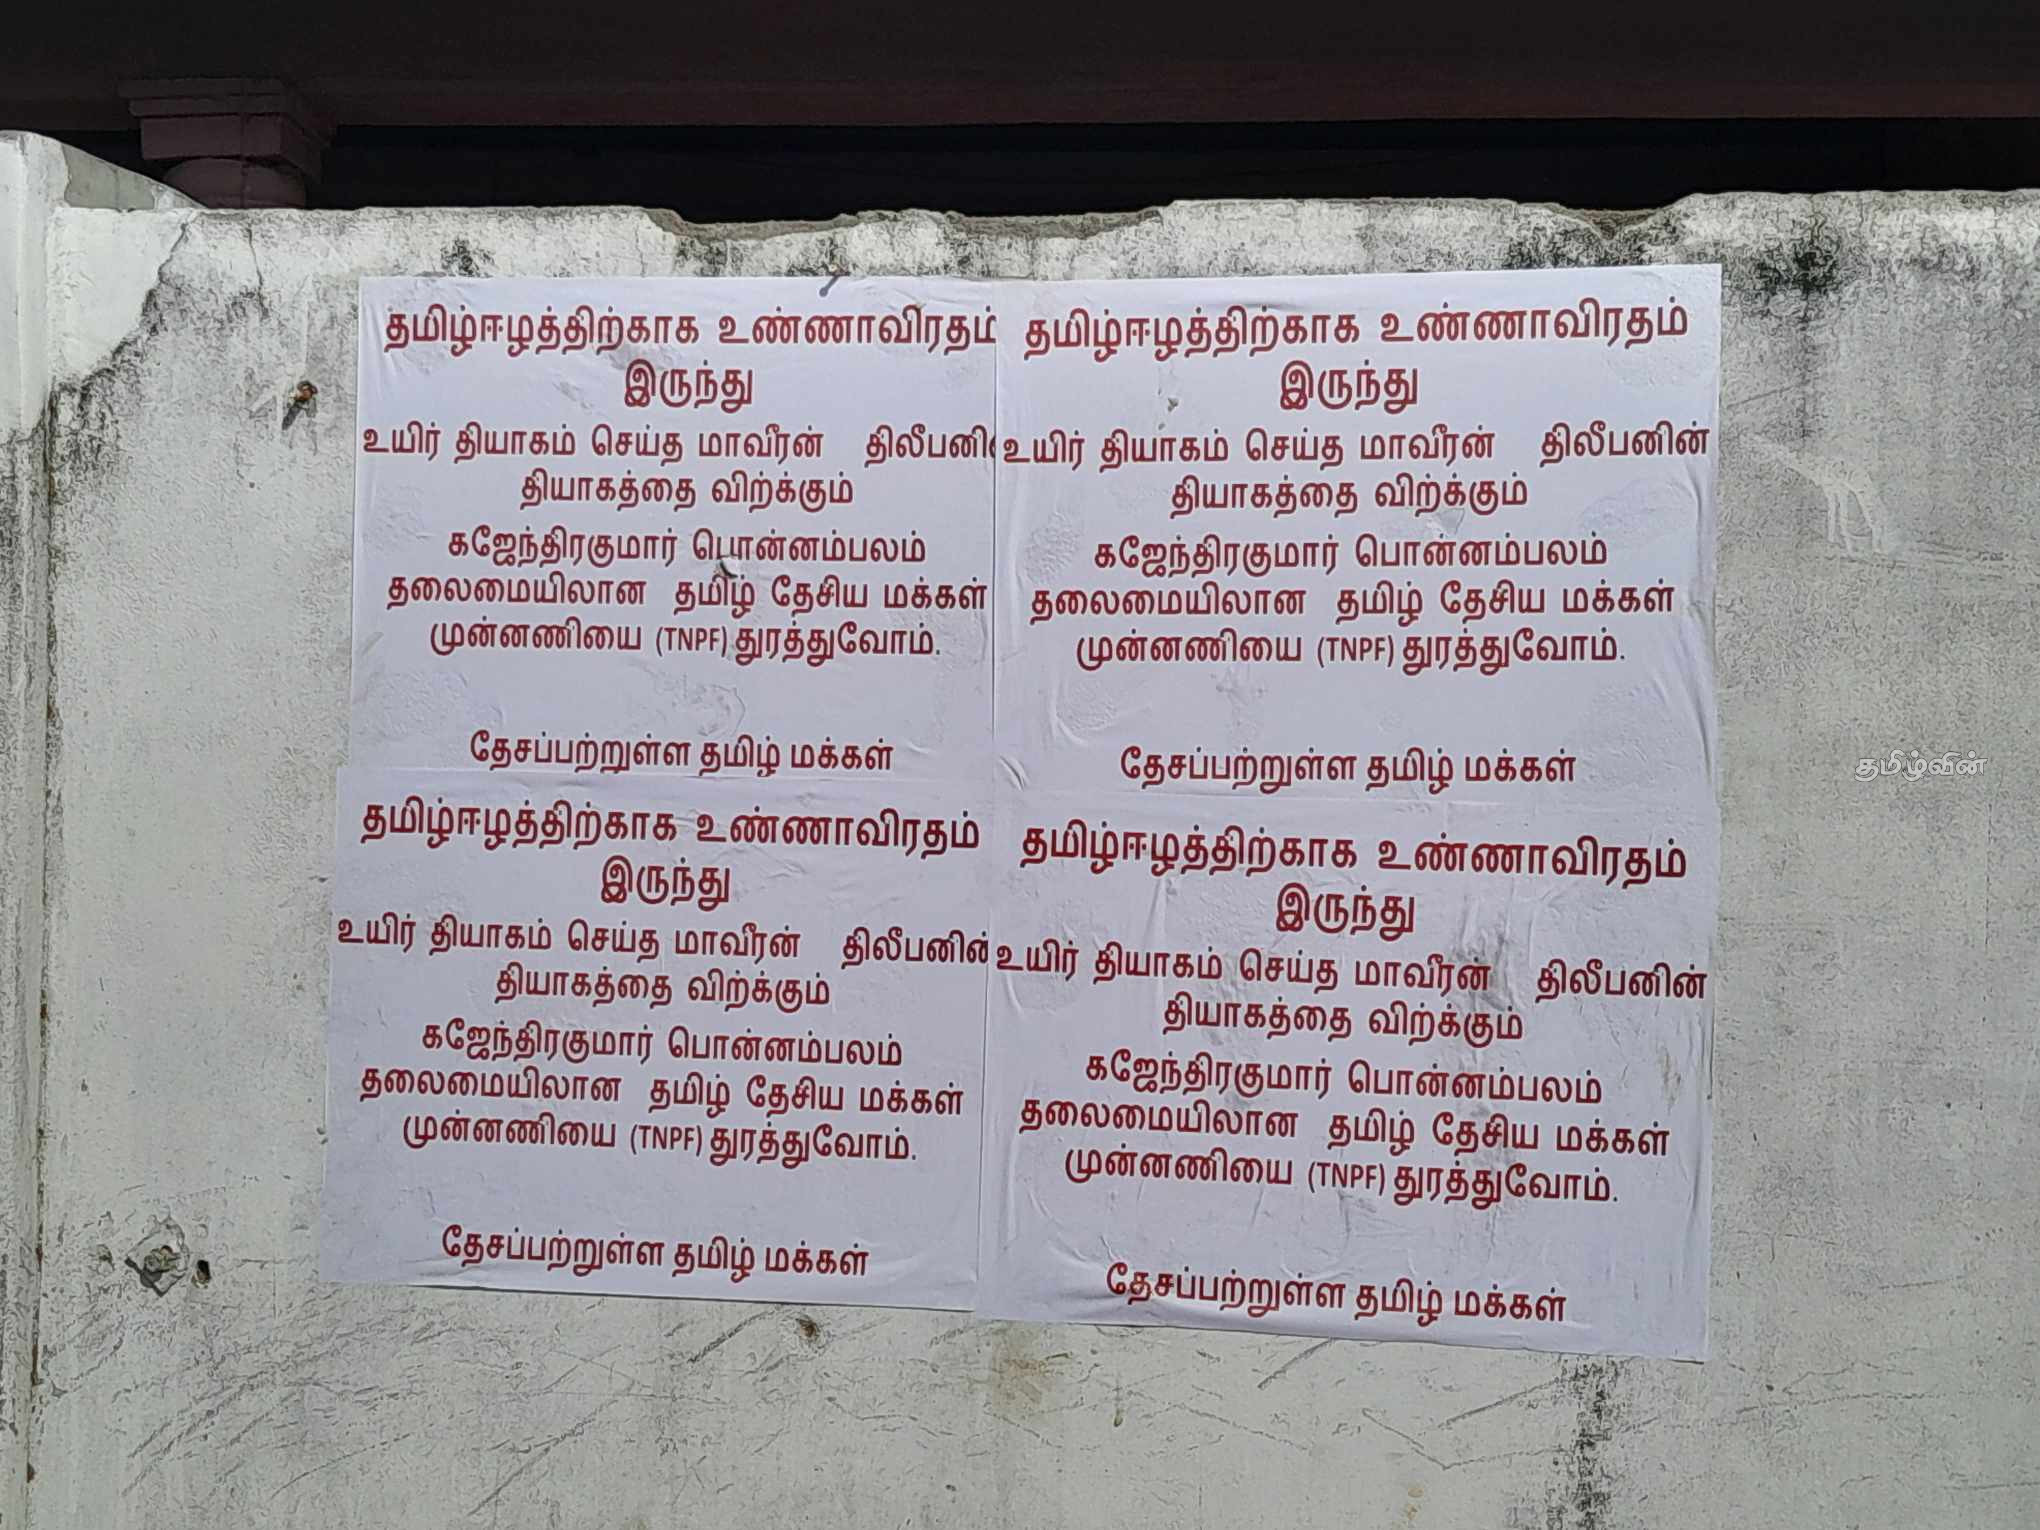 தமிழ்ஈழத்திற்காக உண்ணாவிரதம்
இருந்து
உயிர் தியாகம் செய்த மாவீரன் திலீபனி
தியாகத்தை விற்க்கும்
கஜேந்திரகுமார் பொன்னம்பலம்
தலைமையிலான தமிழ் தேசிய மக்கள்
முன்னணியை (TNPF) துரத்துவோம்.
தேசப்பற்றுள்ள தமிழ் மக்கள்
தமிழ்ஈழத்திற்காக உண்ணாவிரதம்
இருந்து
உயிர் தியாகம் செய்த மாவீரன் திலீபனின்
தியாகத்தை விற்க்கும்
கஜேந்திரகுமார் பொன்னம்பலம்
தலைமையிலான தமிழ் தேசிய மக்கள்
முன்னணியை (TNPF) துரத்துவோம்.
தேசப்பற்றுள்ள தமிழ் மக்கள்
தமிழ்ஈழத்திற்காக உண்ணாவிரதம்
இருந்து
உயிர் தியாகம் செய்த மாவீரன் திலீபனின்
தியாகத்தை விற்க்கும்
கஜேந்திரகுமார் பொன்னம்பலம்
தலைமையிலான தமிழ் தேசிய மக்கள்
முன்னணியை (TNPF) துரத்துவோம்.
தேசப்பற்றுள்ள தமிழ் மக்கள்
தமிழ்ஈழத்திற்காக உண்ணாவிரதம்
இருந்து
உயிர் தியாகம் செய்த மாவீரன் திலீபனின்
தியாகத்தை விற்க்கும்
கஜேந்திரகுமார் பொன்னம்பலம்
தலைமையிலான தமிழ் தேசிய மக்கள்
முன்னணியை (TNPF) துரத்துவோம்.
தேசப்பற்றுள்ள தமிழ் மக்கள்
தமிழ்வின்